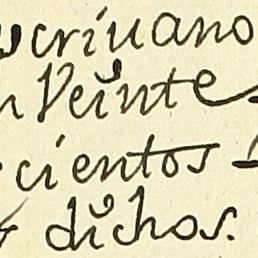 scriuano
Veinte
cientos
dichos.